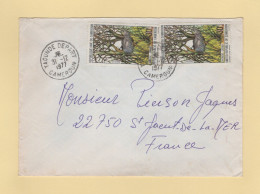 YAOUNDE DEPART
1977
CAMEROUN
1977
CAMEROUN
Monsieur Pinson Jaques
22750 St Jacut-De-La-MER
France